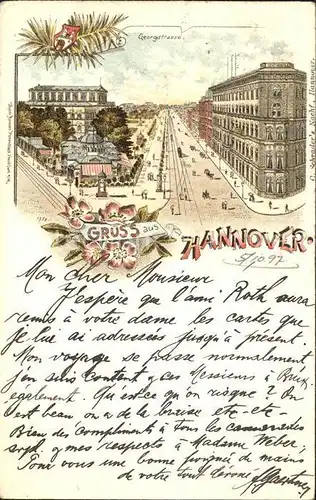 Georgstrasse.
GRUSS aus
HANNOVER.
5/10 97
Mon cher Monsieur
J'espère que l'ami Roth aura
remis à votre dame les cartes que
je lui ai adressées jusqu'à présent.
Mon voyage se passe normalement
j'en suis content & ces Messieurs à
également. Qu'est ce qu'on risque? On
est beau on a de la braise etc-etc
Bien des compliments à tous les camarades
& mes respects à Madame Weber.
Pour vous une bonne poignée de mains
de votre tout dévoué